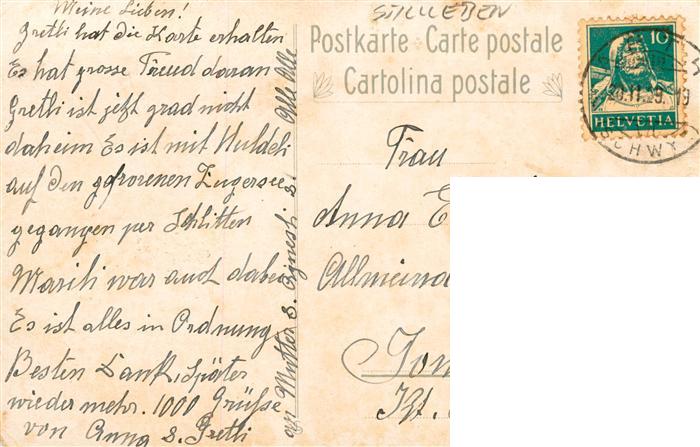 Meine Lieben!
Gretli hat die Karte erhalten
Es hat grosse Freud daran
Gretli ist jetzt grad nicht
daheim Es ist mit Huldeli
auf den gefrorenen Zugersee
gegangen per Schlitten
Marili war auch dabei
Es ist alles in Ordnung
Besten Dank, Später
wieder mehr. 1000 Grüsse
von Anna s. Gretli
Mutter s. Agnesli s. Alle Alle
STILLEBEN
Postkarte · Carte postale
Cartolina postale
10
HELVETIA
SCHWYZ
Frau
Anna E
Allmeind
Kt.